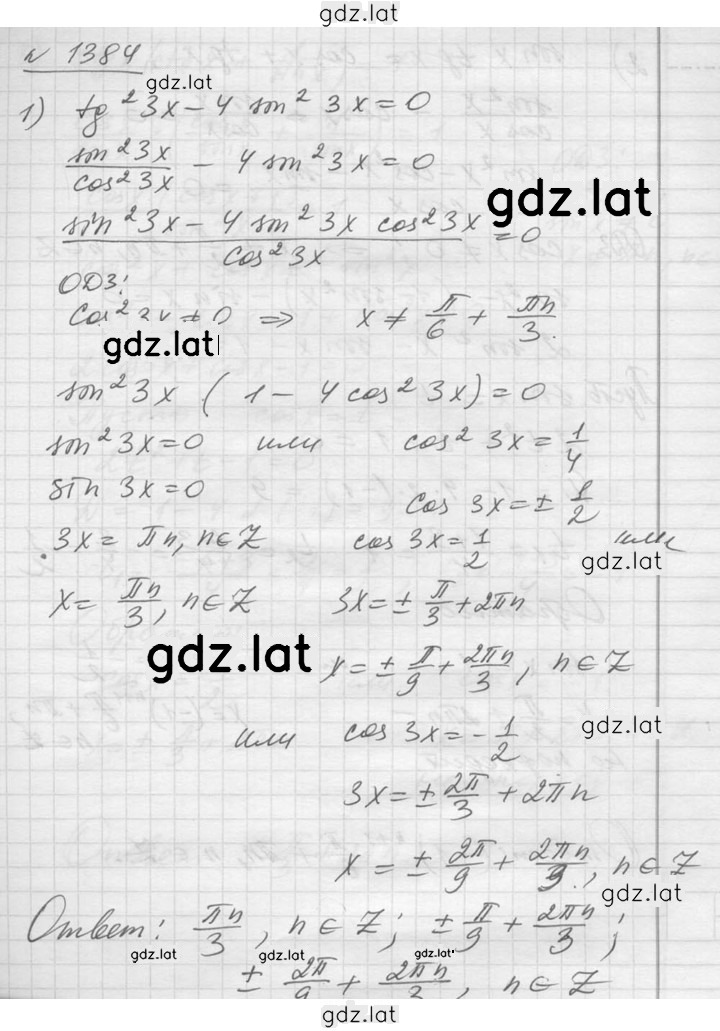 gdz.lat
№ 1384
gdz.lat
1) tg² 3x - 4 sin² 3x = 0
sin² 3x / cos² 3x - 4 sin² 3x = 0
gdz.lat
sin² 3x - 4 sin² 3x cos² 3x / cos² 3x = 0
ОДЗ:
cos² 3x ≠ 0 ⇒ x ≠ π/6 + πn/3.
gdz.lat
sin² 3x (1 - 4 cos² 3x) = 0
sin² 3x = 0 или cos² 3x = 1/4
sin 3x = 0 cos 3x = ± 1/2
3x = πn, n ∈ Z cos 3x = 1/2 или
gdz.lat
x = πn/3, n ∈ Z 3x = ± π/3 + 2πn
gdz.lat
x = ± π/9 + 2πn/3, n ∈ Z
gdz.lat
или cos 3x = - 1/2
3x = ± 2π/3 + 2πn
x = ± 2π/9 + 2πn/3, n ∈ Z
gdz.lat
Ответ: πn/3, n ∈ Z; ± π/9 + 2πn/3;
gdz.lat gdz.lat gdz.lat
± 2π/9 + 2πn/3, n ∈ Z
gdz.lat